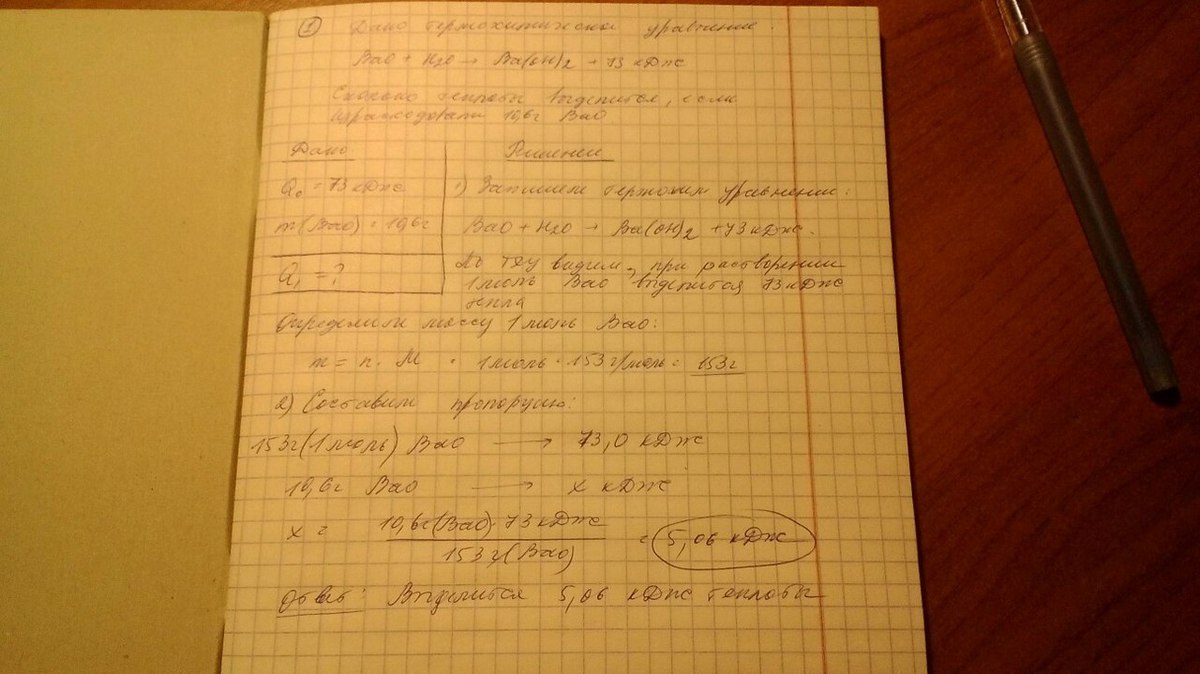 ① Дано термохимическое уравнение:
BaO + H2O → Ba(OH)2 + 73 кДж
Сколько теплоты выделится, если
израсходовали 10,6г BaO
Дано
Q₀ = 73 кДж
m(BaO) = 10,6г
Q₁ = ?
Решение
1) Запишем термохим уравнение:
BaO + H2O → Ba(OH)2 + 73 кДж.
Из ТХУ видим, при растворении
1моль BaO выделится 73 кДж
тепла
Определим массу 1 моль BaO:
m = n · M = 1моль · 153 г/моль = 153г
2) Составим пропорцию:
153г(1моль) BaO → 73,0 кДж
10,6г BaO → x кДж
x = 10,6г(BaO) · 73 кДж = 5,06 кДж
153г(BaO)
Ответ: Выделится 5,06 кДж теплоты